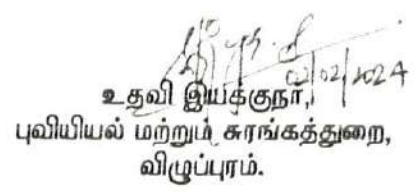 02/02/2024
உதவி இயக்குநர்,
புவியியல் மற்றும் சுரங்கத்துறை,
விழுப்புரம்.